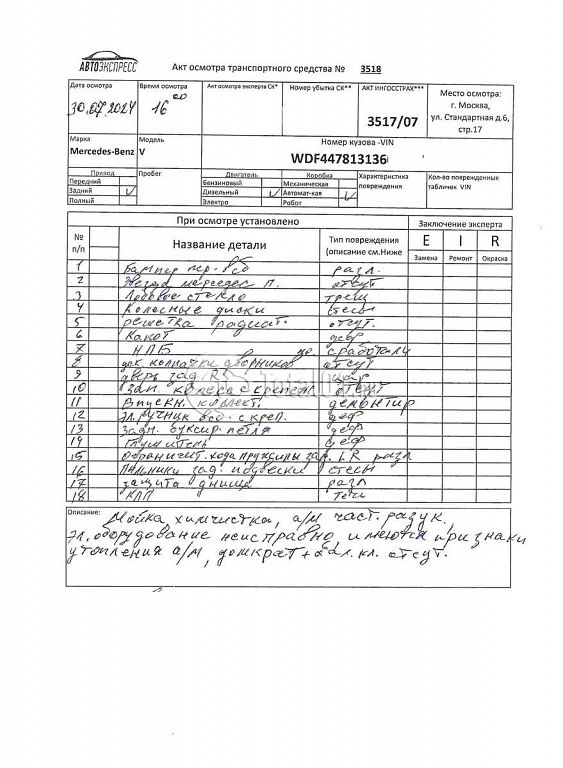 АВТОЭКСПРЕСС
Акт осмотра транспортного средства № 3518
Дата осмотра
30.07.2024
Время осмотра
16 00
Акт осмотра эксперта СК*
Номер убытка СК**
АКТ ИНГОССТРАХ***
3517/07
Место осмотра:
г. Москва,
ул. Стандартная д.6,
стр.17
Марка
Mercedes-Benz
Модель
V
Номер кузова -VIN
WDF447813136
Привод
Передний
Задний V
Полный
Пробег
Двигатель
Бензиновый
Дизельный V
Электро
Коробка
Механическая
Автомат-кая V
Робот
Характеристика
повреждения
Кол-во поврежденных
табличек VIN
При осмотре установлено
Заключение эксперта
№
п/п
Название детали
Тип повреждения
(описание см.Ниже
E I R
Замена Ремонт Окраска
1 Бампер пер. в сб разл.
2 Звезда мерседес П. отсут
3 Лобовое стекло трещ
4 Колесные диски стесы
5 решетка радиат. отсут.
6 Капот деф
7 НПБ не сработали
8 дек. колпачки дворников отсут
9 дверь зад R
10 Зап. колесо с крепеж отсут
11 Впускн. коллект. демонтир
12 Эл. ручник в сб. с креп. деф
13 Задн. буксир. петля деф
14 Глушитель деф
15 Ограничит. хода пружины зад. LR разл
16 зад. подвески стесы
17 защита днища разл
18 КПП Течь
Описание:
Мойка химчистка, а/м част. разук.
Эл. оборудование неисправно, имеются признаки
утопления а/м, домкрат + отсут.